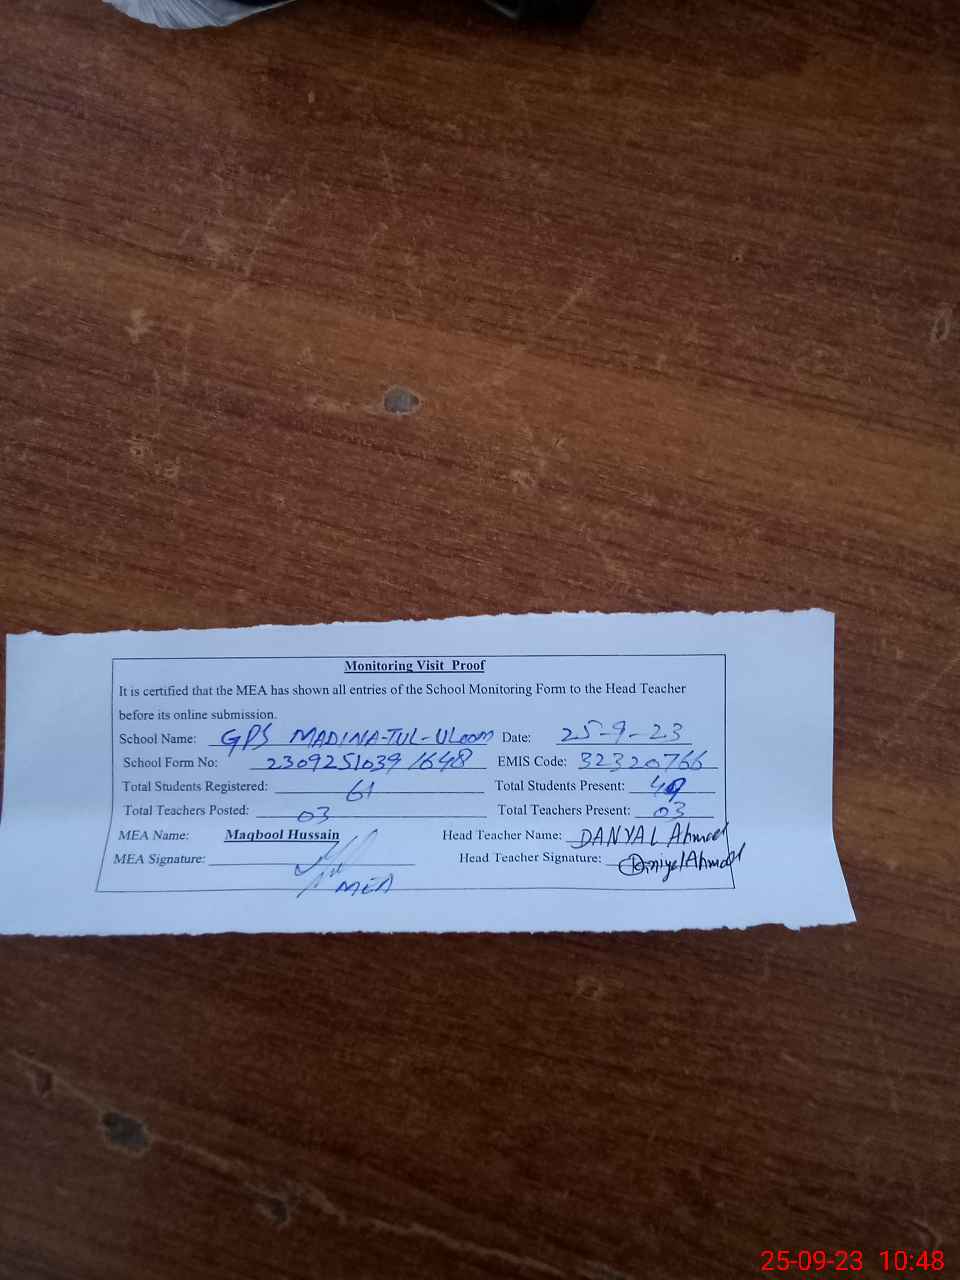 Monitoring Visit Proof
It is certified that the MEA has shown all entries of the School Monitoring Form to the Head Teacher
before its online submission.
School Name: GPS MADINA-TUL-ULoom Date: 25-9-23
School Form No: 2309251039/648 EMIS Code: 32320766
Total Students Registered: 61 Total Students Present: 49
Total Teachers Posted: 03 Total Teachers Present: 03
MEA Name: Maqbool Hussain Head Teacher Name: DANYAL Ahmad
MEA Signature: Head Teacher Signature: DaniyalAhmad
MEA
25-09-23 10:48